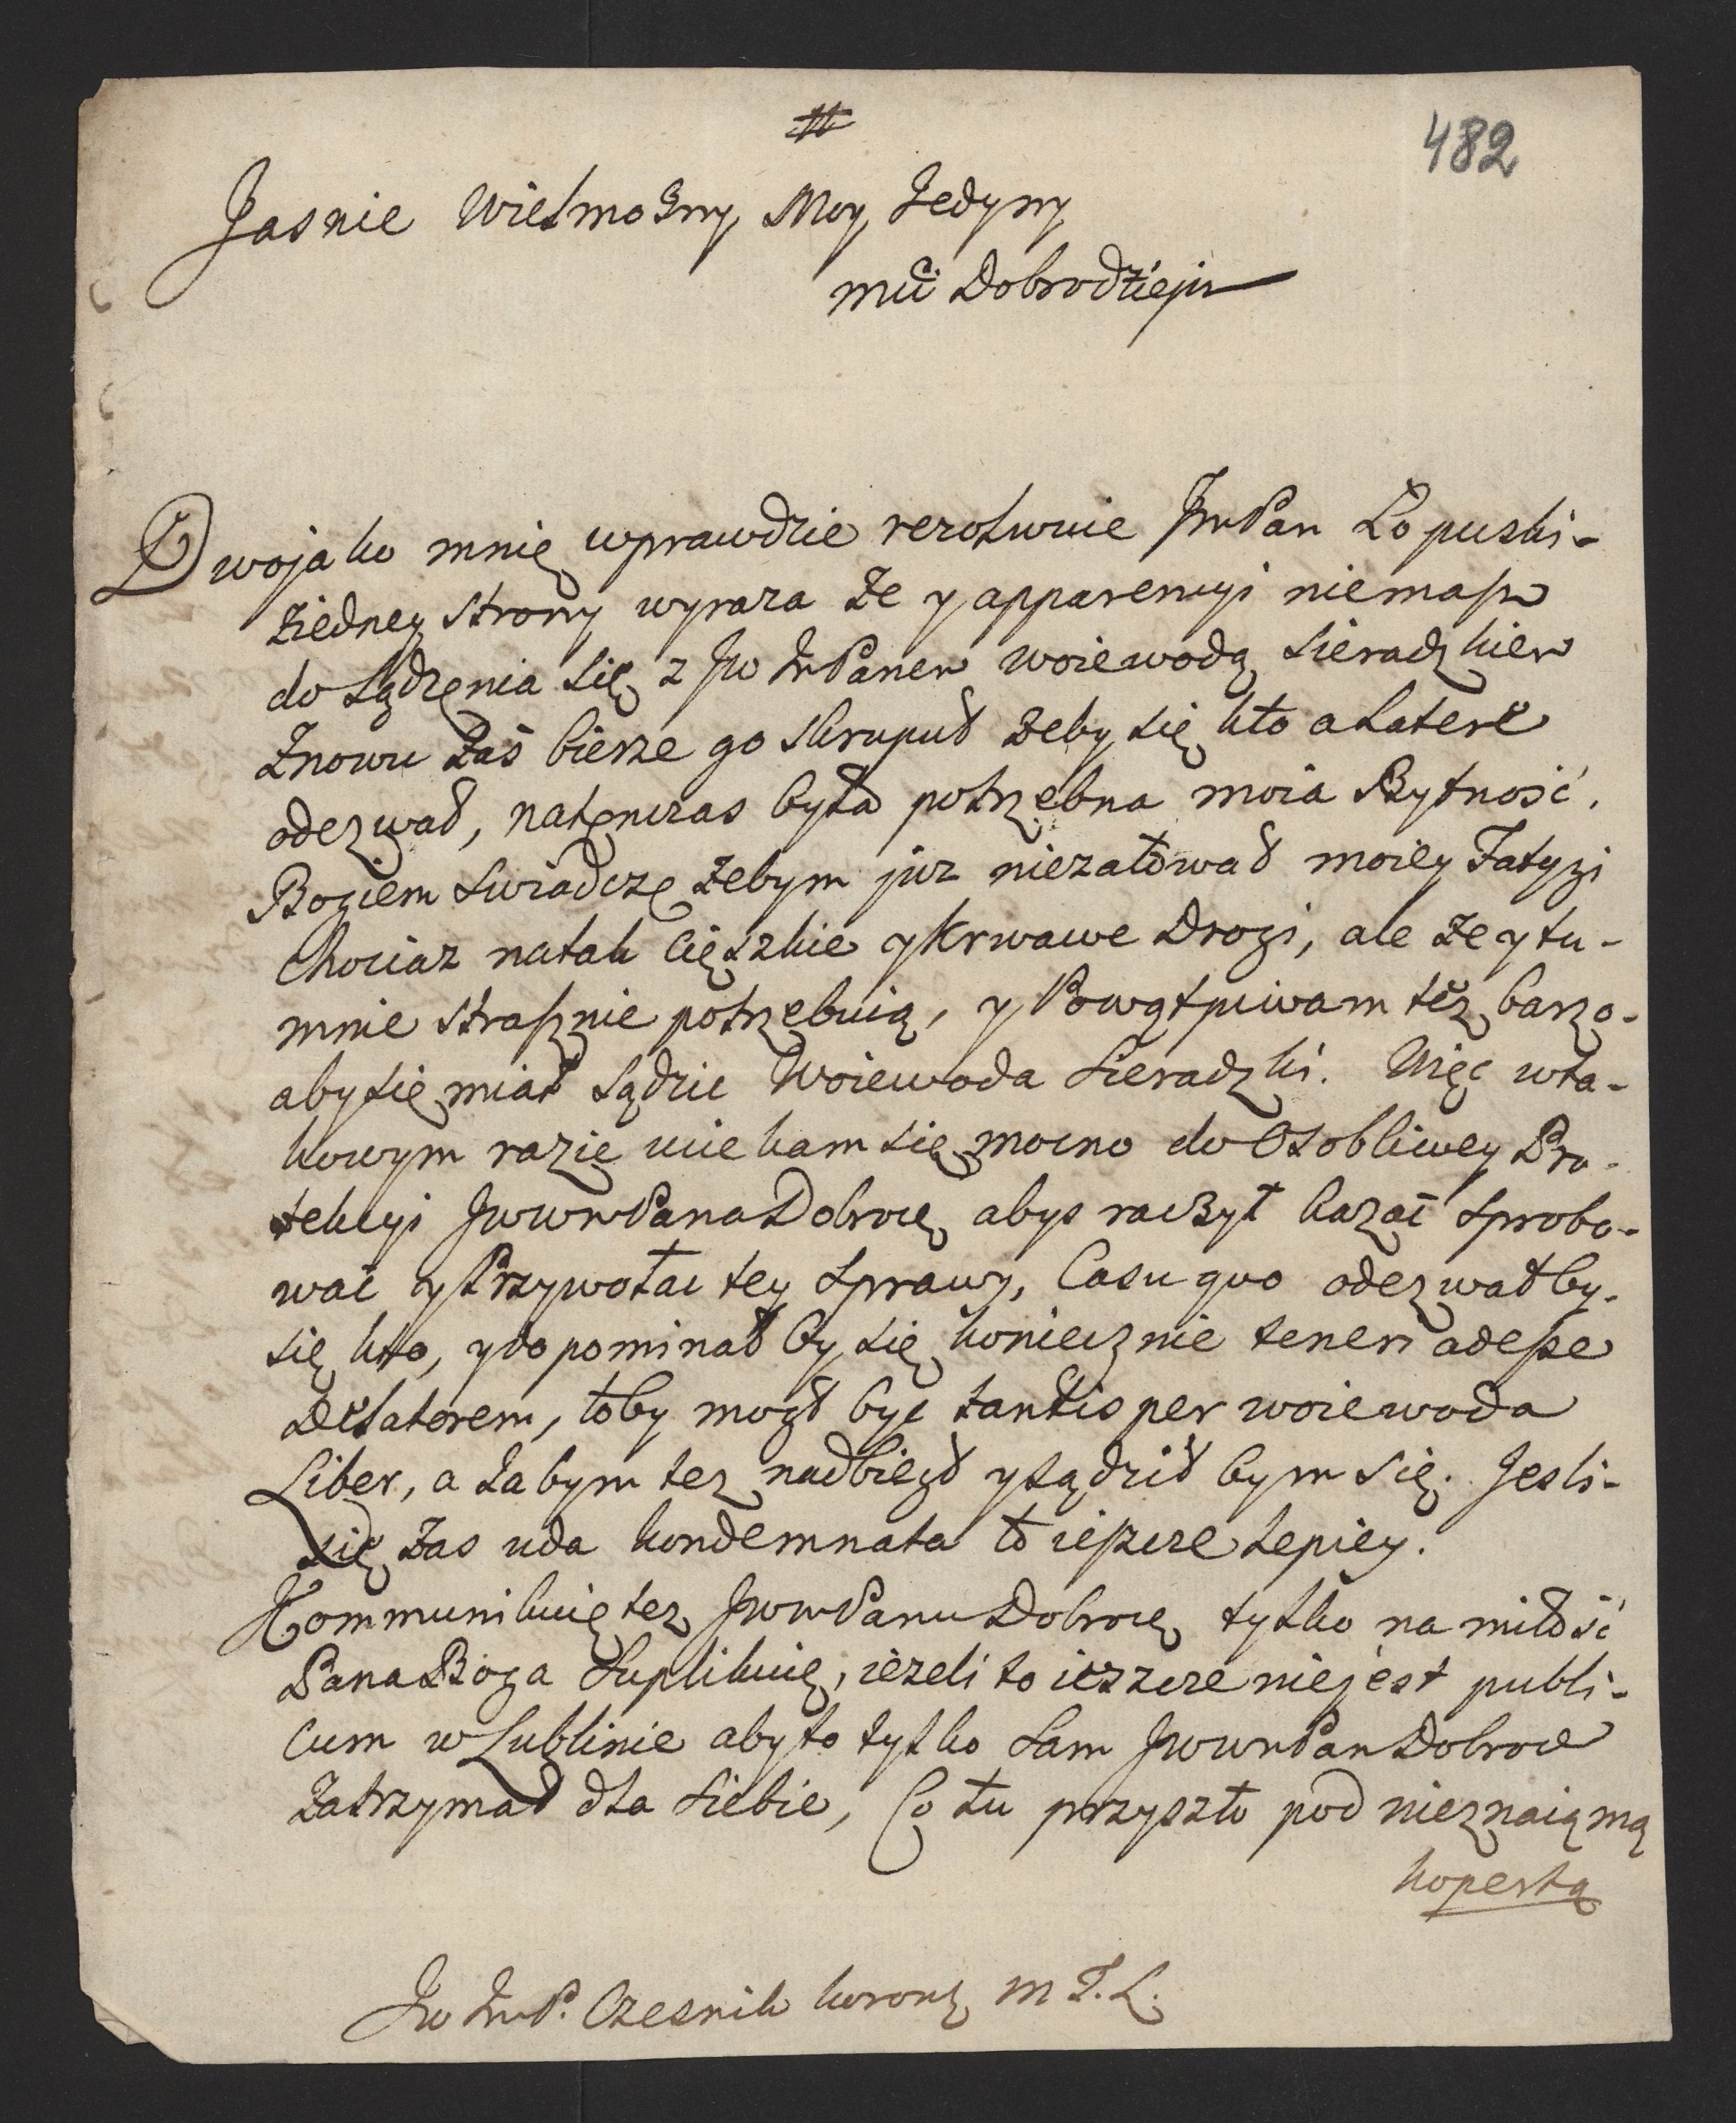 482
Jasnie Wielmożny Moy Jedyny
Mci Dobrodzieju
Dwojako mnię wprawdzie rezolwuie JmPan Łopuski-
ziedney strony wyraza że y apparencyi niemasz
do Sądzęnia się z Jw JmPanem woiewodą Sieradzkiem
Znowu Zaś bierze go skrupuł żeby się kto a Latere
odezwał, natęnczas była potrzebna moia Bytność.
Bogiem Swiadczę żebym juz niezałował moiey Fatygi
Chociaz natak Cięszkie y Krwawe Drogi, ale że y tu-
mnie strasznie potrzebuią, y Powątpiwam też barzo-
aby się miał Sądzic Woiewoda Sieradzki. Więc wta-
kowym razię uciekam się mocno do Osobliwey Pro-
tekcyi JwwmPana Dobrocę abys raczył kazać Sprobo-
wać y Przywołac tey Sprawy, Casu quo odezwałby-
się kto, y dopominał by się koniecznie teneri adesse
Delatorem, toby mogł byc tantisper woiewoda
Liber, a Jabym tez nadbiegł y Sądził bym się. Jesli-
się Zas uda kondemnata to ieszcze Lepiey.
Kommunikuię tez JwwmPanu Dobrocę tylko na miłość
Pana Boga Suplikuię, iezeli to ieszcze niejest publi-
cum w Lublinie aby to tylko Sam JwwmPan Dobroc
Zatrzymał dla Siebie, Co tu przyszło pod nieznaiąmą
kopertą
Jw JmP. Czesnik koronę M T. L.